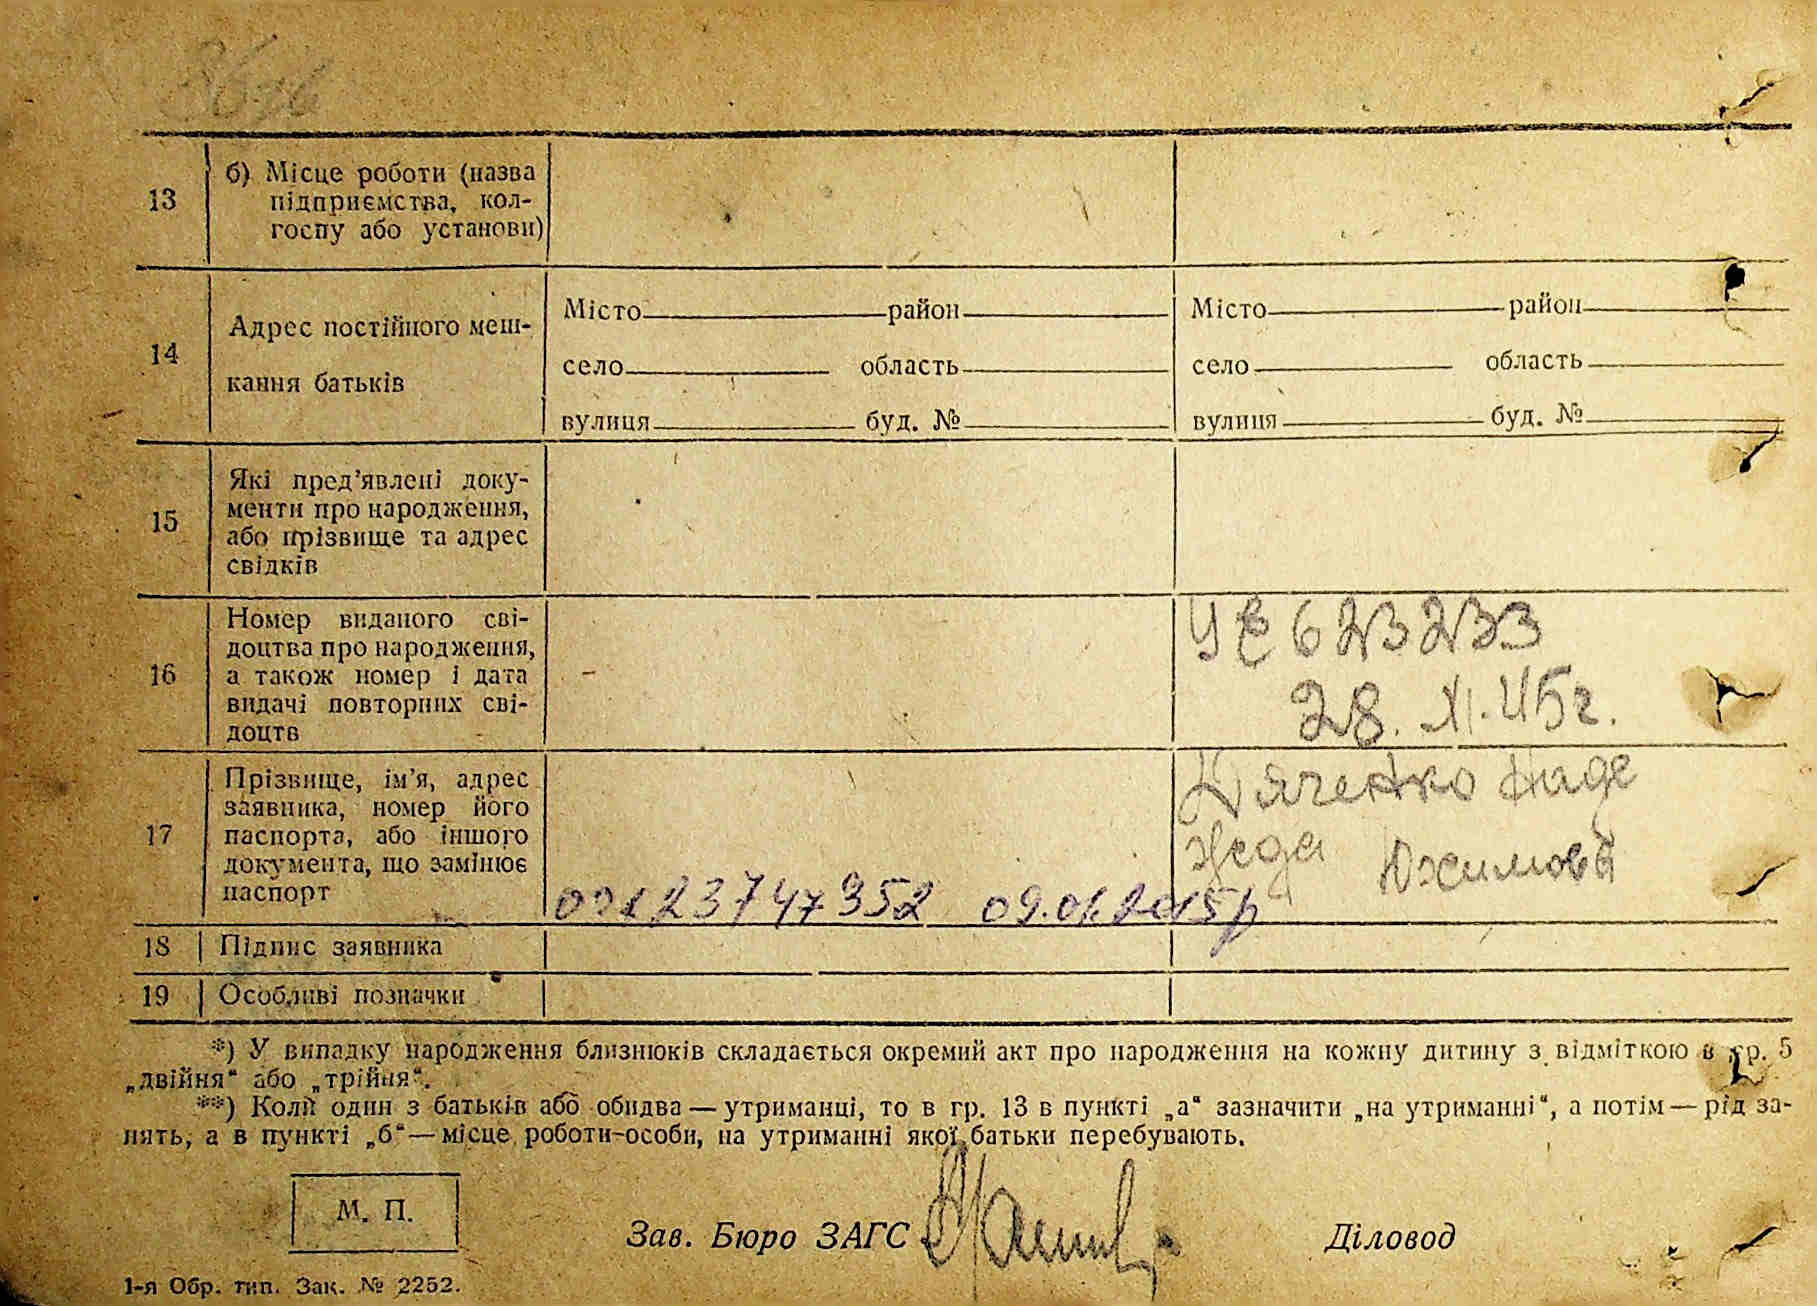 13
б) Місце роботи (назва
підприємства, кол-
госпу або установи)
14
Адрес постійного меш-
кання батьків
Місто район
село область
вулиця буд. №
Місто район
село область
вулиця буд. №
15
Які пред’явлені доку-
менти про народження,
або прізвище та адрес
свідків
16
Номер виданого сві-
доцтва про народження,
а також номер і дата
видачі повторних сві-
доцтв
623233
28. XI. 45г.
17
Прізвище, ім’я, адрес
заявника, номер його
паспорта, або іншого
документа, що замінює
паспорт
Дяченко Наде
жда
00123747352 09.01.2015р
18 Підпис заявника
19 Особливі позначки
*) У випадку народження близнюків складається окремий акт про народження на кожну дитину з відміткою в гр. 5
„двійня“ або „трійня“.
**) Коли один з батьків або обидва — утриманці, то в гр. 13 в пункті „а“ зазначити „на утриманні“, а потім — рід за-
нять, а в пункті „б“ — місце роботи особи, на утриманні якої батьки перебувають.
М. П.
Зав. Бюро ЗАГС
Діловод
1-я Обр. тип. Зак. № 2252.